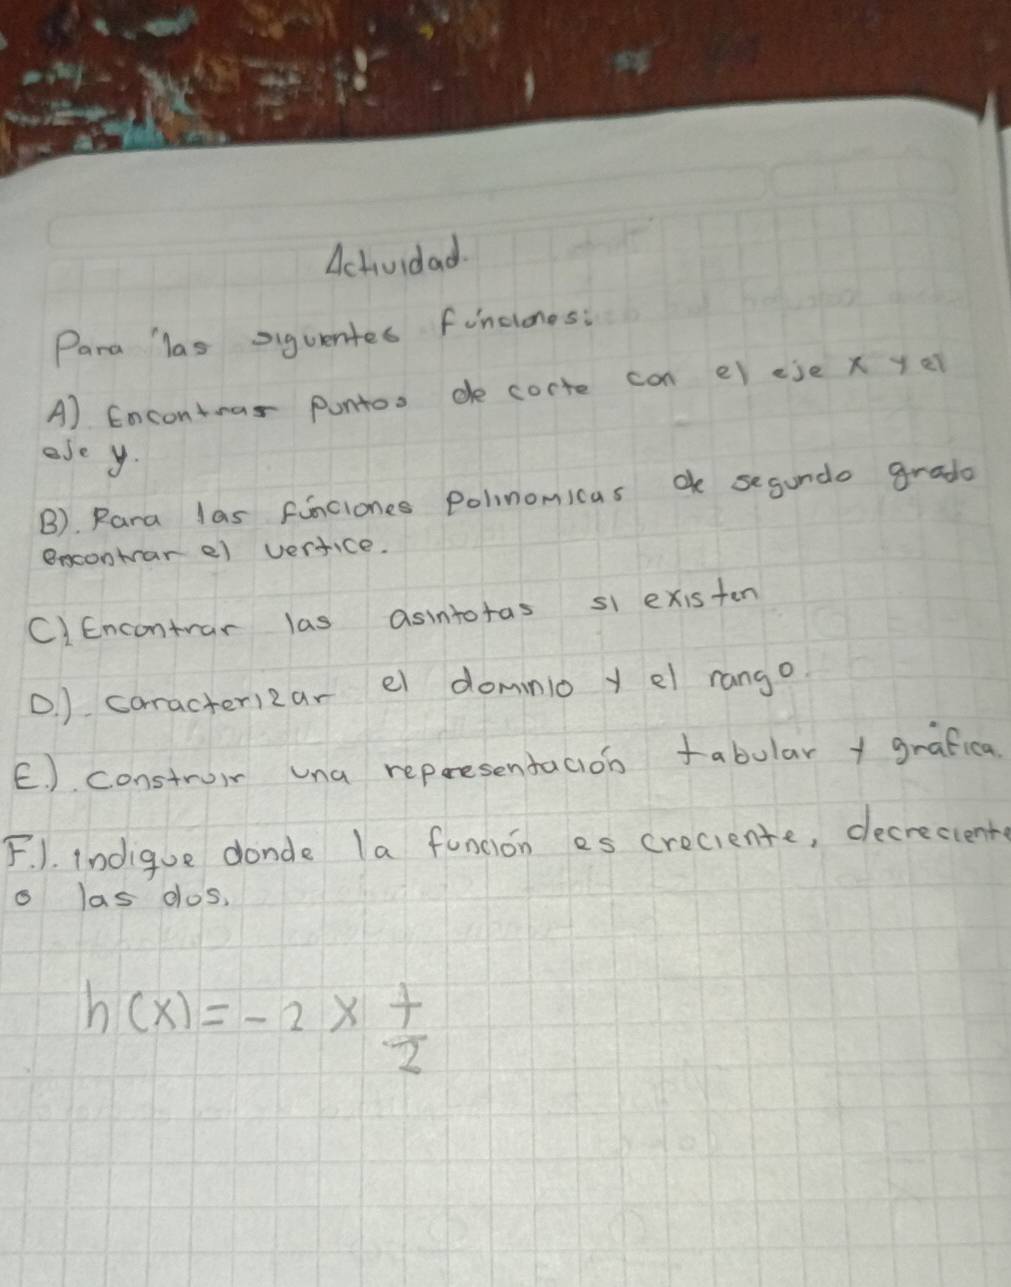 Actividad.
Para las siguientes funciones:
A) Encontrar puntos de corte con el eje x y el
eje y.
B). Para las funciones polinomicas de segundo grado
encontrar el vertice.
C) Encontrar las asintotas si existen
D.). caracterizar el dominio y el rango.
E.). construir una representación tabular y gráfica.
F.). indique donde la función es creciente, decreciente
o las dos.
h(x) = -2 x +/2